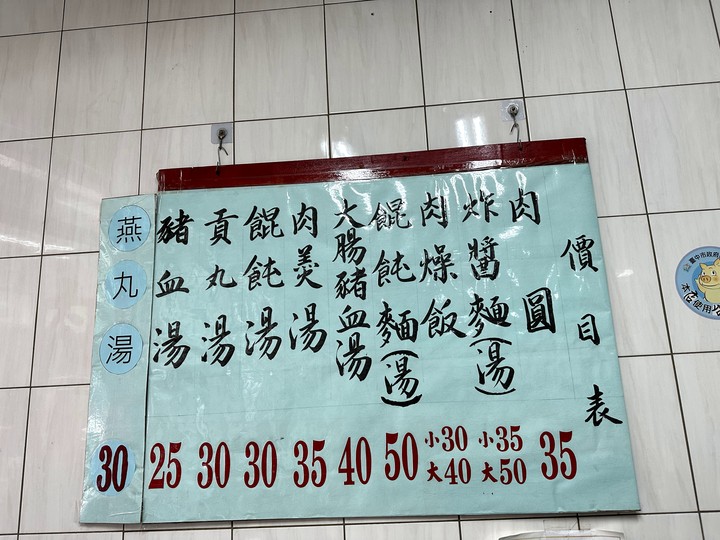 價目表
肉圓 35
炸醬麵(湯) 小35 大50
肉燥飯 小30 大40
餛飩麵(湯) 50
大腸豬血湯 40
肉羮湯 35
餛飩湯 30
貢丸湯 30
豬血湯 25
燕丸湯 30
臺中市政府